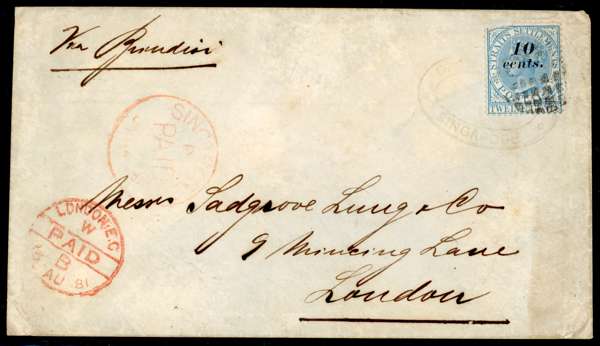 Via Brindisi
STRAITS SETTLEMENTS
10
cents.
SINGAPORE
PAID
Messrs Sadgrove Lung & Co
9 Mincing Lane
London
LONDON E.C
W
PAID
B
AU 81